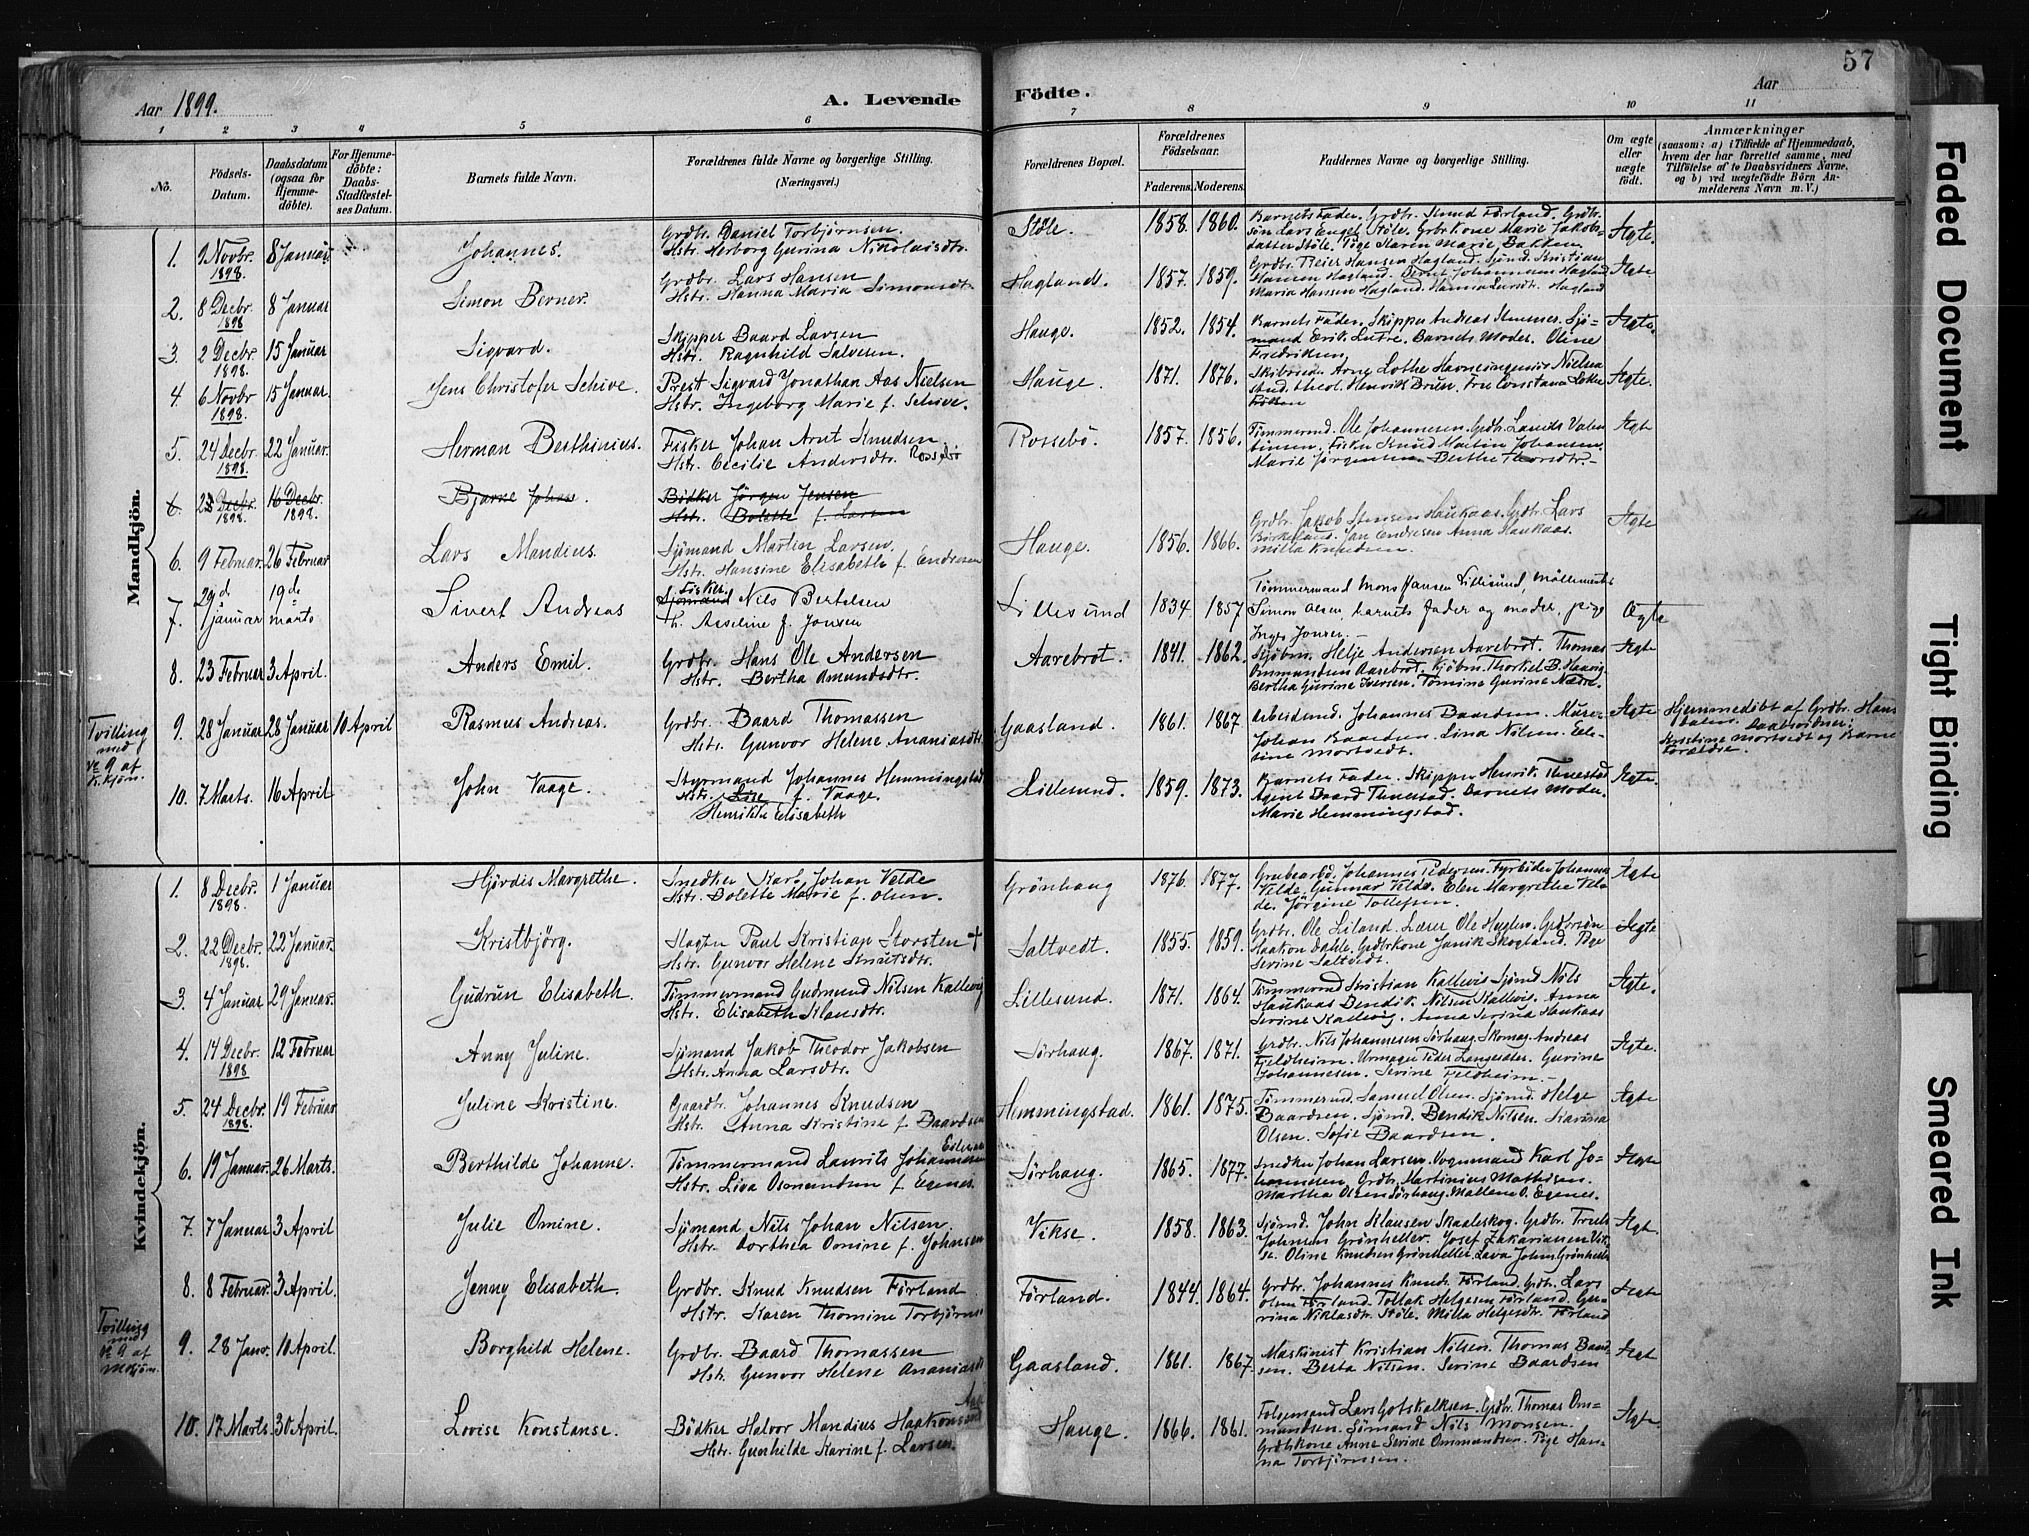 57
Aar 1899.
A. Levende
Födte.
Aar
1 2 3 4 5 6 7 8 9 10 11
No.
Födsels-Datum.
Daabsdatum (ogsaa for Hjemme-döbte).
For Hjemme-döbte: Daabs-Stadfæstel-ses Datum.
Barnets fulde Navn.
Forældrenes fulde Navne og borgerlige Stilling. (Næringsvei.)
Forældrenes Bopæl.
Forældrenes Födselsaar.
Faderens. Moderens.
Faddernes Navne og borgerlige Stilling.
Om ægte eller uægte födt.
Anmærkninger
(saasom: a) i Tilfælde af Hjemmedaab,
hvem der har forrettet samme, med
Tilföielse af to Daabsvidners Navne,
og b) ved uægtefödte Börn An-
melderens Navn m. V.)
Mandkjön.
1. 9 Novbr. 1898 8 Januar Johannes.
Grdbr. Daniel Torbjörnsen.
Hstr. Herborg Gurina Nikolaisdtr.
Stöle. 1858. 1860.
Barnets Fader. Grdbr. Knud Förland. Grdbr.
sön Lars Engel Stöle. Grbr.kone Marie Jakobs-
datter Stöle. Pige Karen Marie Bakken.
Ægte.
2. 8 Decbr. 1898 8 Januar Simon Berner.
Grdbr. Lars Hansen
Hstr. Hanna Maria Simonsdtr.
Hagland. 1857. 1859.
Grdbr. Reier Hansen Hagland. Sjömd. Kristian
Hansen Hagland. Johannesen Hagland
Maria Hansen Hagland. Hanna Hagland
Ægte
3. 2 Decbr. 1898. 15 Januar Sigvard.
Skipper Baard Larsen
Hstr. Ragnhild Salvesen.
Hauge. 1852. 1854.
Barnets Fader. Skipper Andreas Sjö-
mand Erik Lutre. Barnets Moder. Oline
Fredriksen
Ægte.
4. 6 Novbr 1898. 15 Januar. Jens Christofer Schive.
Prest Sigvard Jonathan Aas Nielsen
Hstr. Ingeborg Marie f. Schive.
Hauge. 1871. 1876.
Skibsreder Arne Lothe Havneingeniör Nielsen
stud. theol. Henrik Brun. Fru Constance Lothe
Ægte.
5. 24 Decbr. 1898. 22 Januar. Herman Berthinius.
Fisker Johan Arnt Knudsen
Hstr. Cecilie Andersdtr. Rossebö
Rossebö. 1857. 1856.
Tömmermd. Ole Johannesen. Grdbr. Laurits Valen
tinsen. Fisker Knud Martin Johansen.
Marie Jörgensen Berthe Thorsdtr.
Ægte
6. 23 Decbr. 1898. 16 Decbr. 1898. Bjarne Johan.
Bödker Jörgen Jensen
Hstr. Bolette f. Larsen
6. 9 Februar. 26 Februar Lars Mandius.
Sjömand Marten Larsen.
Hstr. Hansine Elisabeth f. Endresen
Hauge. 1856. 1866.
Grdbr. Jakob Stensen Haukaas. Grdbr. Lars
Birkeland. Jan Endresen Anna Haukaas.
Milla Knudsen.
Ægte
7. 29d januar 19de marts Sivert Andreas
Fisker
Sjömand Nils Bertelsen
h. Asseline f. Jonsen
Lillesund 1834 1857
Tömmermand Mons Jansen Lillesund, möllemester
Simon Olsen, barnets fader og moder, pige
Inger Jonsen.
Ægte
8. 23 Februar 3 April. Anders Emil.
Grdbr. Hans Ole Andersen
Hstr. Bertha Amundsdtr.
Aarebrot. 1841. 1862.
Kjöbm. Helje Andersen Aarebrot. Thomas
Ommundsen Aarebrot. Kjöbm. Thorkel B. Haavig
Bertha Gurine Iversen. Tomine Gurine Næsse.
Ægte
Tvilling med No 9 af Kvkjön.
9. 28 Januar 28 Januar 10 April Rasmus Andreas.
Grdbr. Baard Thomassen
Hstr. Gunvor Helene Ananiasdtr.
Gaasland. 1861. 1867.
Arbeidsmd. Johannes Baardsen. Murer
Johan Baardsen. Lina Nilsen. Ele-
sine Mortvedt.
Ægte
Hjemmedöbt af Grdbr. Hans
Dalen. Daabsvidner:
Kristine Mortvedt og Barnets
Forældre.
10. 7 Marts. 16 April John Vaage.
Styrmand Johannes Hemmingstad
Hstr. Lise f. Vaage.
Henrikke Elisabeth
Lillesund. 1859. 1873.
Barnets Fader. Skipper Henrik Thuestad
Agent Baard Thuestad. Barnets Moder.
Marie Hemmingstad.
Ægte.
Kvindekjön.
1. 8 Decbr. 1898. 1 Januar Hjördis Margrethe.
Snedker Karl Johan Velde
Hstr. Bolette Marie f. Olsen.
Grönhaug 1876. 1877.
Grubearbd. Johannes Pedersen. Fyrböder Johannes
Velde. Gunnar Velde. Elen Margrethe Vel-
de. Jörgine Tollefsen.
Ægte
2. 22 Decbr. 1898. 22 Januar. Kristbjörg.
Slagter Paul Kristian Storsten †
Hstr. Gunvor Helene Knutsdtr.
Saltvedt. 1855. 1859.
Grdbr. Ole Liland. Lærer Ole Huglen. Grdbrsön
Haakon Dahle. Grdbrkone Janik Skogland. Pige
Serine Saltvedt.
Ægte
3. 4 Januar 29 Januar. Gudrun Elisabeth.
Tömmermand Gudmund Nilsen Kallevig
Hstr. Elisabeth Klausdtr.
Lillesund. 1871. 1864.
Tömmermd Kristian Kallevig Sjömd Nils
Haukaas Bendik Nilsen Kallevig. Anna
Serine Kallevig. Anna Serina Haukaas
Ægte.
4. 14 Decbr. 1898 12 Februar Anny Juline.
Sjömand Jakob Theodor Jakobsen
Hstr. Anna Larsdtr.
Sörhaug. 1867. 1871.
Grdbr. Nils Johannesen Sörhaug. Skomag. Andreas
Fjeldheim. Urmager Peder Langesæter. Gurine
Johannesen. Serine Feldheim.
Ægte.
5. 24 Decbr. 1898. 19 Februar Juline Kristine.
Gaardbr. Johannes Knudsen
Hstr. Anna Kristine f. Baardsen
Hemmingstad. 1861. 1875.
Tömmermd. Samuel Olsen. Sjömd. Helge
Baardsen. Sjömd. Bendik Nilsen. Karina
Olsen. Sofie Baardsen.
Ægte
6. 19 Januar. 26 Marts. Berthilde Johanne.
Tömmermand Laurits Johannesen
Hstr. Liva Osmundsen f. Egenes.
Sörhaug. 1865. 1877.
Snedker Johan Larsen. Vognmand Karl Jo-
hannesen. Grdb. Martinius Mathisen.
Martha Olsen Sörhaug. Mallene O. Egenes.
Ægte
7. 7 Januar. 3 April Julie Omine.
Sjömand Nils Johan Nilsen.
Hstr. Dorthea Omine f. Johnsen
Vikse. 1858. 1863.
Sjömd. John Klausen Skaaleskog. Grdbr. Troels
Johnsen Grönheller. Josef Zakariassen Vik-
se. Oline Knudsen Grönheller. Lava Johns. Grönheller
Ægte.
8. 8 Februar. 3 April. Jenny Elisabeth.
Grdbr. Knud Knudsen Förland
Hstr. Karen Thomine Torbjörns
Förland. 1844. 1864.
Grdbr. Johannes Knuds. Förland. Grdbr. Lars
Olsen Förland. Tollak Helgesen Förland. Gu-
rina Niklasdtr. Stöle. Milla Helgesdtr. Förland
Ægte
Tvilling med No 9 af Mkjön.
9. 28 Janr. 10 April. Borghild Helene.
Grdbr. Baard Thomassen
Hstr. Gunvor Helene Ananiasdtr
Gaasland. 1861. 1867.
Maskinist Kristian Nilsen. Thomas Baard-
sen. Berta Nilsen. Serine Baardsen
Ægte
10. 17 Marts. 30 April. Lovise Konstanse.
Bödker Halvor Mandius Haakonsen
Hstr. Gunhilde Karine f. Larsen.
Hauge. 1866. 1861.
Lars Gotskalksen. Grdbr. Thomas Om-
mundsen. Sjömand Nils Monsen.
Grdbrkone Anne Serine Ommundsen. Pige Han-
na Torbjörnssen.
Ægte.
Faded Document
Tight Binding
Smeared Ink